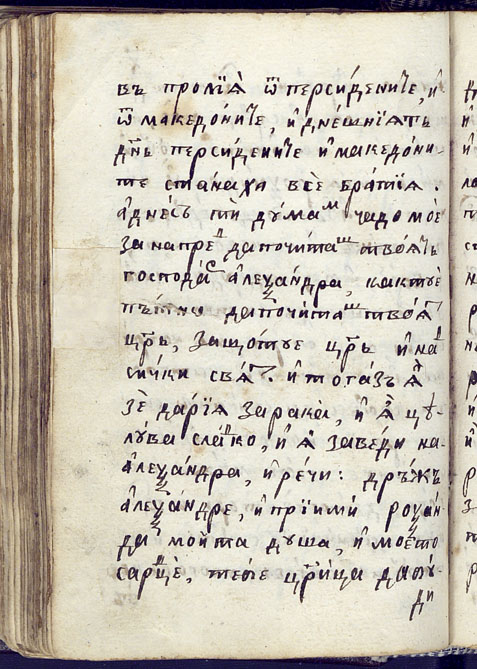 въ пролїѧ̀ ѿ персиде́ните, и҆
ѿ македо́ните, и҆ дне́шнїѧтъ
дн҃ь персиде́ните и҆ македо́ни-
те ста́наха всѐ бра́тїѧ.
а҆ дне́съ тѝ дꙋ́маⷨ чадо мое
за напреⷣ да почи́таш твоѧтъ
господа́рⷭ҇ а҆леѯа́ндра, както е
пъ́тно да почи́таш твоѧⷮ
цр҃ь, защо́тꙋе цр҃ь и҆ наⷣ
си́чки свѧⷮ. и҆ тога́зъ ѧ҆̀
зѐ да́рїѧ за рака̀, и҆ ѧ҆̀ цꙋ-
лꙋ́ва слаⷣко, и҆ ѧ҆̀ заве́ди на
а҆леѯа́ндра, и҆ ре́чи: дръ́жъ
а҆леѯа́ндре, и҆ прїими́ роѯа́н-
да мой́та дꙋша, и҆ мое́то
сарⷣцѐ, тео́е цр҃и́ца да бꙋ́-
ди